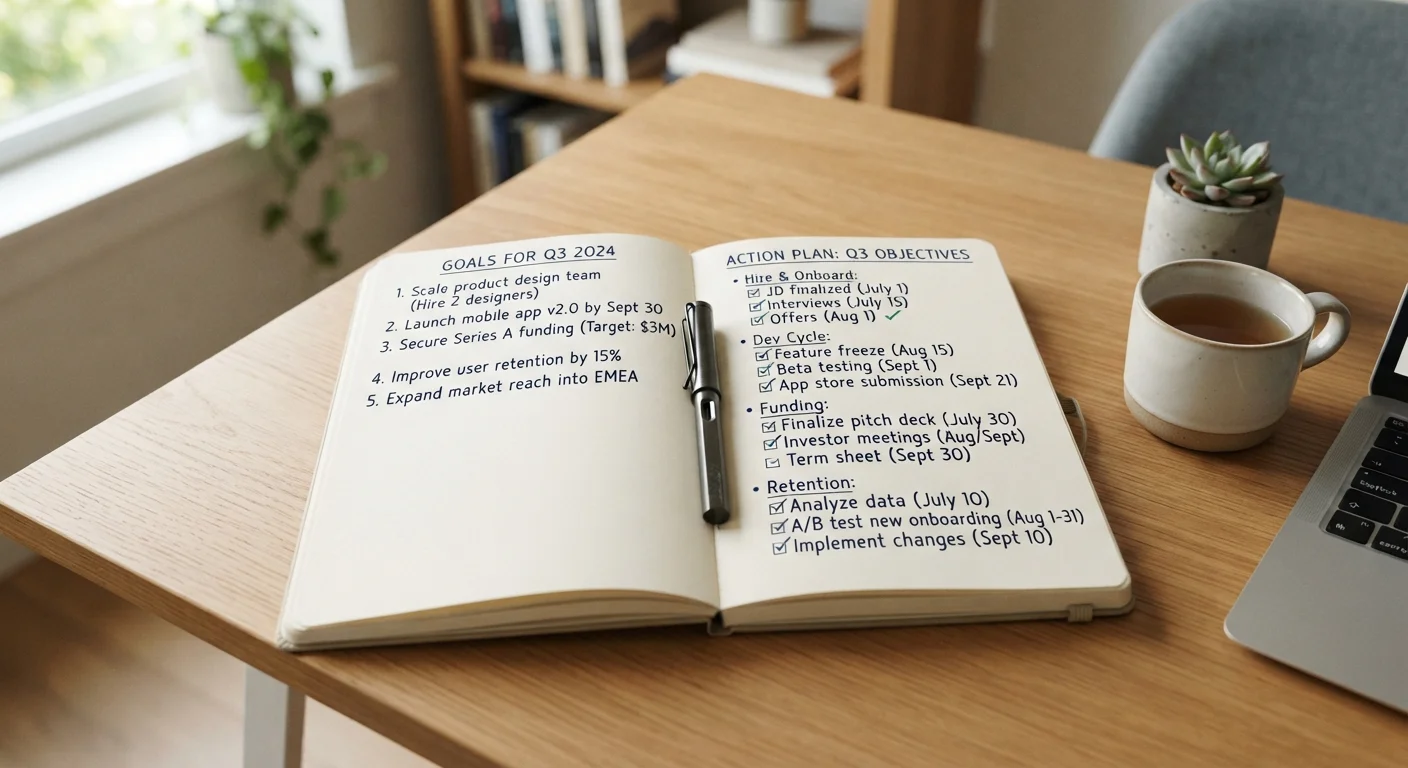 GOALS FOR Q3 2024
1. Scale product design team
(Hire 2 designers)
2. Launch mobile app v2.0 by Sept 30
3. Secure Series A funding (Target: $3M)
4. Improve user retention by 15%
5. Expand market reach into EMEA
ACTION PLAN: Q3 OBJECTIVES
• Hire & Onboard:
☑ JD finalized (July 1)
☑ Interviews (July 15)
☑ Offers (Aug 1) ✓
• Dev Cycle:
☑ Feature freeze (Aug 15)
☑ Beta testing (Sept 1)
☑ App store submission (Sept 21)
• Funding:
☑ Finalize pitch deck (July 30)
☑ Investor meetings (Aug/Sept)
☐ Term sheet (Sept 30)
• Retention:
☑ Analyze data (July 10)
☑ A/B test new onboarding (Aug 1-31)
☑ Implement changes (Sept 10)